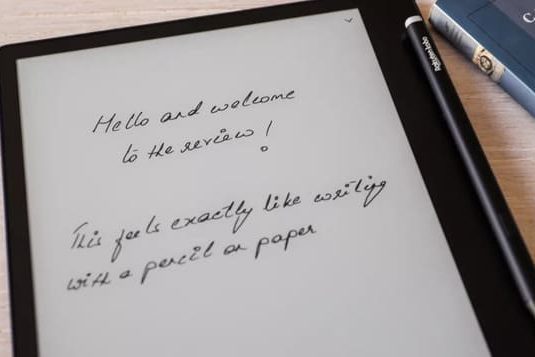 Hello and welcome
to the review!
This feels exactly like writing
with a pencil on paper
Rakuten kobo